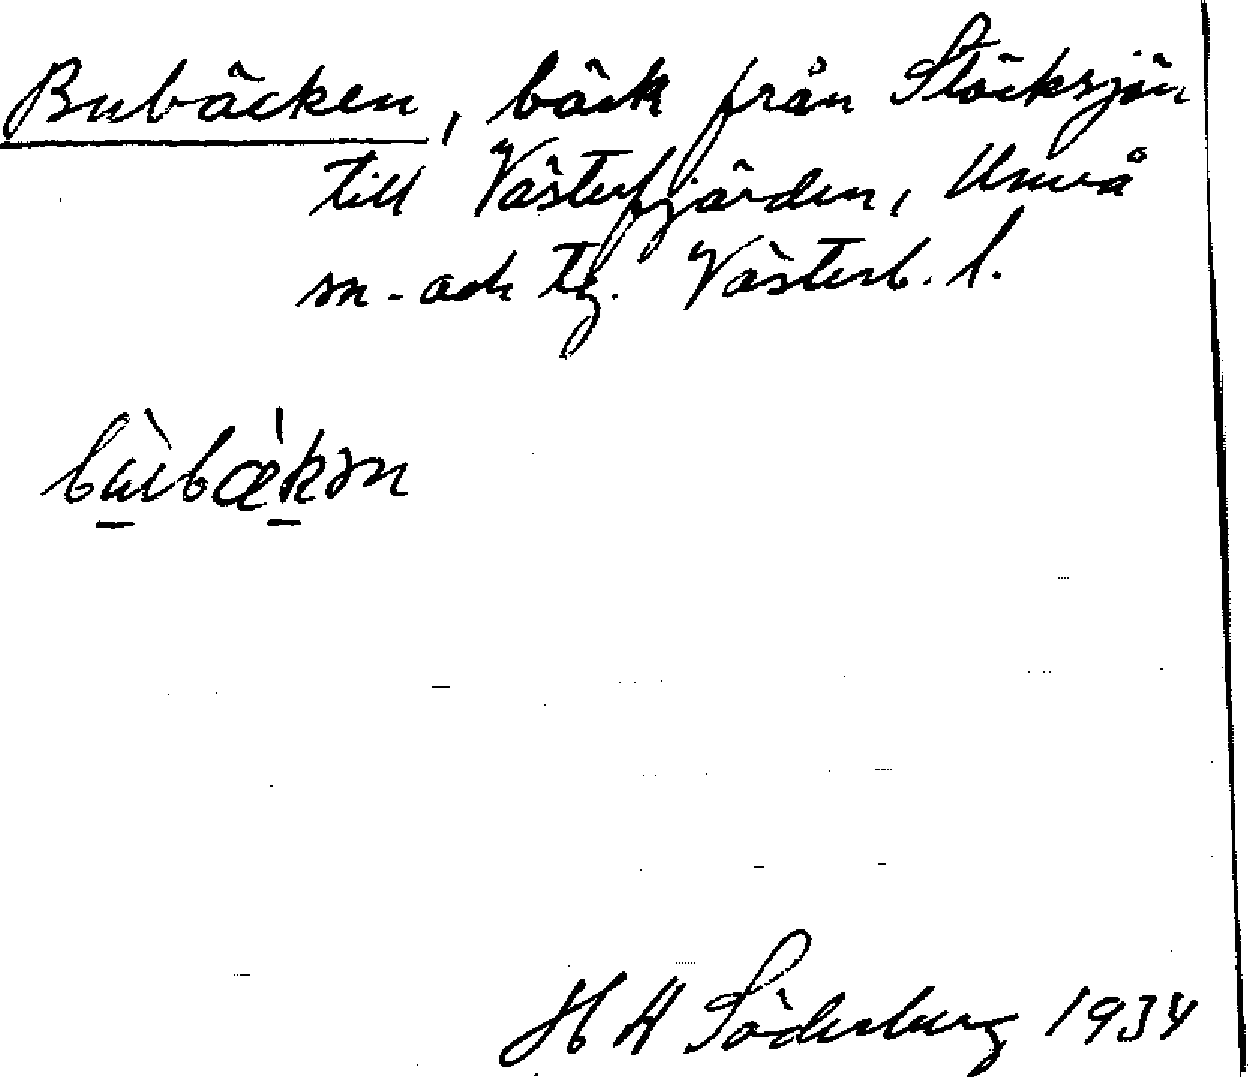 Bubäcken, bäck från Stöcksjön
till Västerfjärden, Umeå
sn - och tg. Västerb. l.
bùbæ̀kən
H H Söderberg 1934